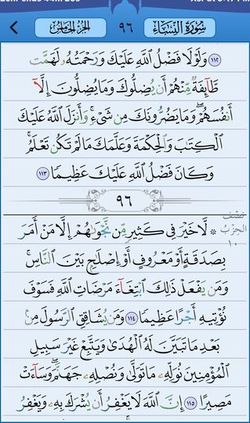 سُورَةُ النِّسَاء ٩٦ الجزء الخامس
١١٢ وَلَوْلَا فَضْلُ اللَّهِ عَلَيْكَ وَرَحْمَتُهُ لَهَمَّت
طَّائِفَةٌ مِّنْهُمْ أَن يُضِلُّوكَ وَمَا يُضِلُّونَ إِلَّا
أَنفُسَهُمْ وَمَا يَضُرُّونَكَ مِن شَيْءٍ وَأَنزَلَ اللَّهُ عَلَيْكَ
الْكِتَابَ وَالْحِكْمَةَ وَعَلَّمَكَ مَا لَمْ تَكُن تَعْلَمُ
وَكَانَ فَضْلُ اللَّهِ عَلَيْكَ عَظِيمًا ١١٣
٩٦
نصف الحزب ١٠
لَّا خَيْرَ فِي كَثِيرٍ مِّن نَّجْوَاهُمْ إِلَّا مَنْ أَمَرَ
بِصَدَقَةٍ أَوْ مَعْرُوفٍ أَوْ إِصْلَاحٍ بَيْنَ النَّاسِ
وَمَن يَفْعَلْ ذَٰلِكَ ابْتِغَاءَ مَرْضَاتِ اللَّهِ فَسَوْفَ
نُؤْتِيهِ أَجْرًا عَظِيمًا ١١٤ وَمَن يُشَاقِقِ الرَّسُولَ مِن
بَعْدِ مَا تَبَيَّنَ لَهُ الْهُدَىٰ وَيَتَّبِعْ غَيْرَ سَبِيلِ
الْمُؤْمِنِينَ نُوَلِّهِ مَا تَوَلَّىٰ وَنُصْلِهِ جَهَنَّمَ وَسَاءَتْ
مَصِيرًا ١١٥ إِنَّ اللَّهَ لَا يَغْفِرُ أَن يُشْرَكَ بِهِ وَيَغْفِرُ